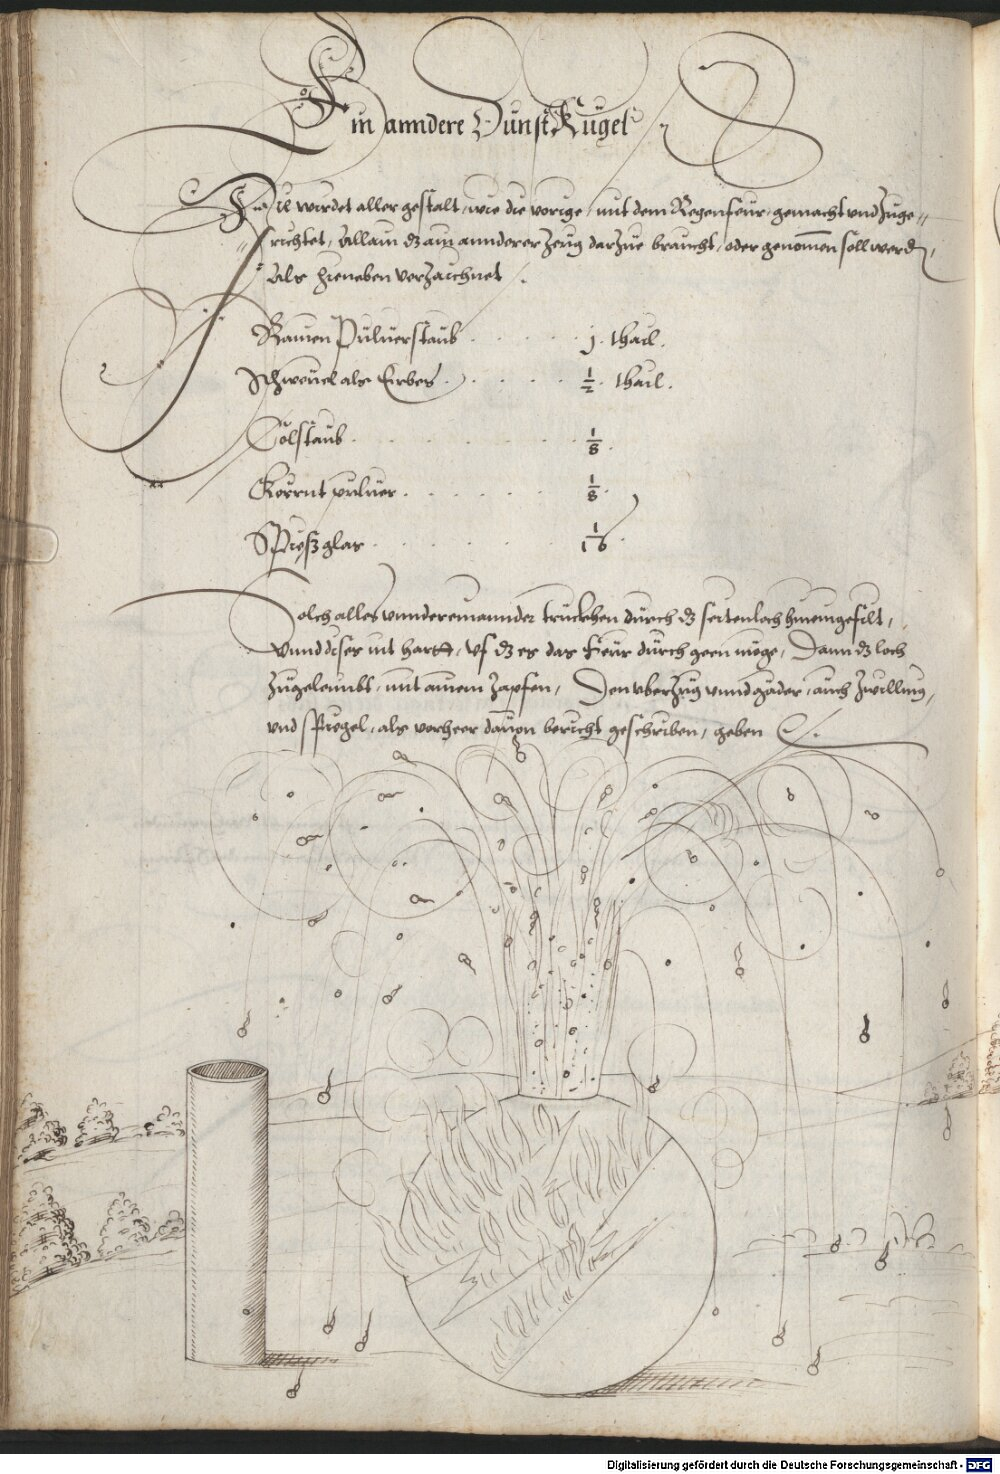 Ein anndere Dunst Kugel
Dise wirdet aller gestalt, wie die vorige, mit dem Regenfeur, gemacht vnd Zuge=
richtet, Allain dz ain annderer Zeug darZue braucht, oder genomen soll werdn,
Als hieneben verZaichnet.
Ramen Puluerstaub . . . . . j. thail.
Schweuel als Erbes . . . . . 1/2 . thail.
Colstaub . . . . . 1/8 .
Körnt puluer . . . . . 1/8 .
Spiesz glas . . . . . 1/16 .
Solch alles vnndereinannder truckhen durch dz seitenloch hineingefilt,
vnnd dises nit hartt, vf dz es das Feur durch geen müge, Dann dz loch
Zugeleimbt, mit ainem Zapfen, Den vberZug vnnd gäder, auch Zwilling,
vnd Spiegel, als vorheer dauon bericht geschriben, geben
Digitalisierung gefördert durch die Deutsche Forschungsgemeinschaft - DFG